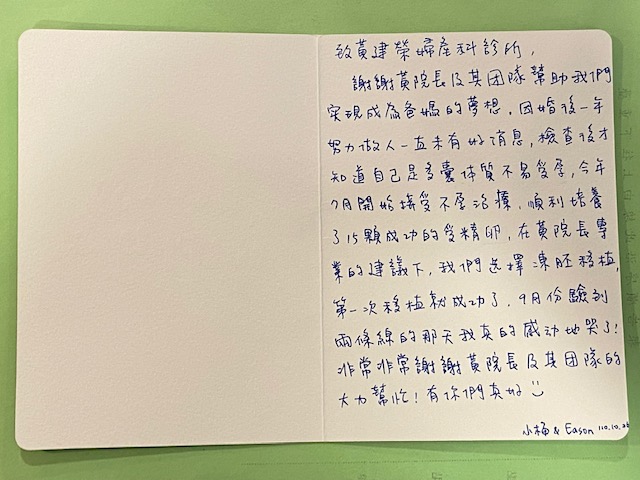 致黃建榮婦產科診所,
謝謝黃院長及其团隊幫助我們
实現成為爸媽的夢想,因婚後一年
努力做人一直未有好消息,檢查後才
知道自己是多囊体質不易受孕,今年
7月開始接受不孕治療,順利培養
了15顆成功的受精卵,在黃院長專
業的建議下,我們选擇凍胚移植,
第一次移植就成功了,9月份驗到
兩條線的那天我真的感动地哭了!
非常非常謝謝黃院長及其团隊的
大力幫忙!有你們真好
小楊 & Eason 110.10.26